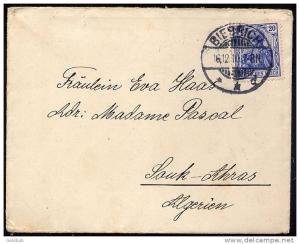 BIEBRICH
16.12.10. 7-8N
20
Fräulein Eva Haas
Adr: Madame Pascal
Souk-Ahras
Algerien